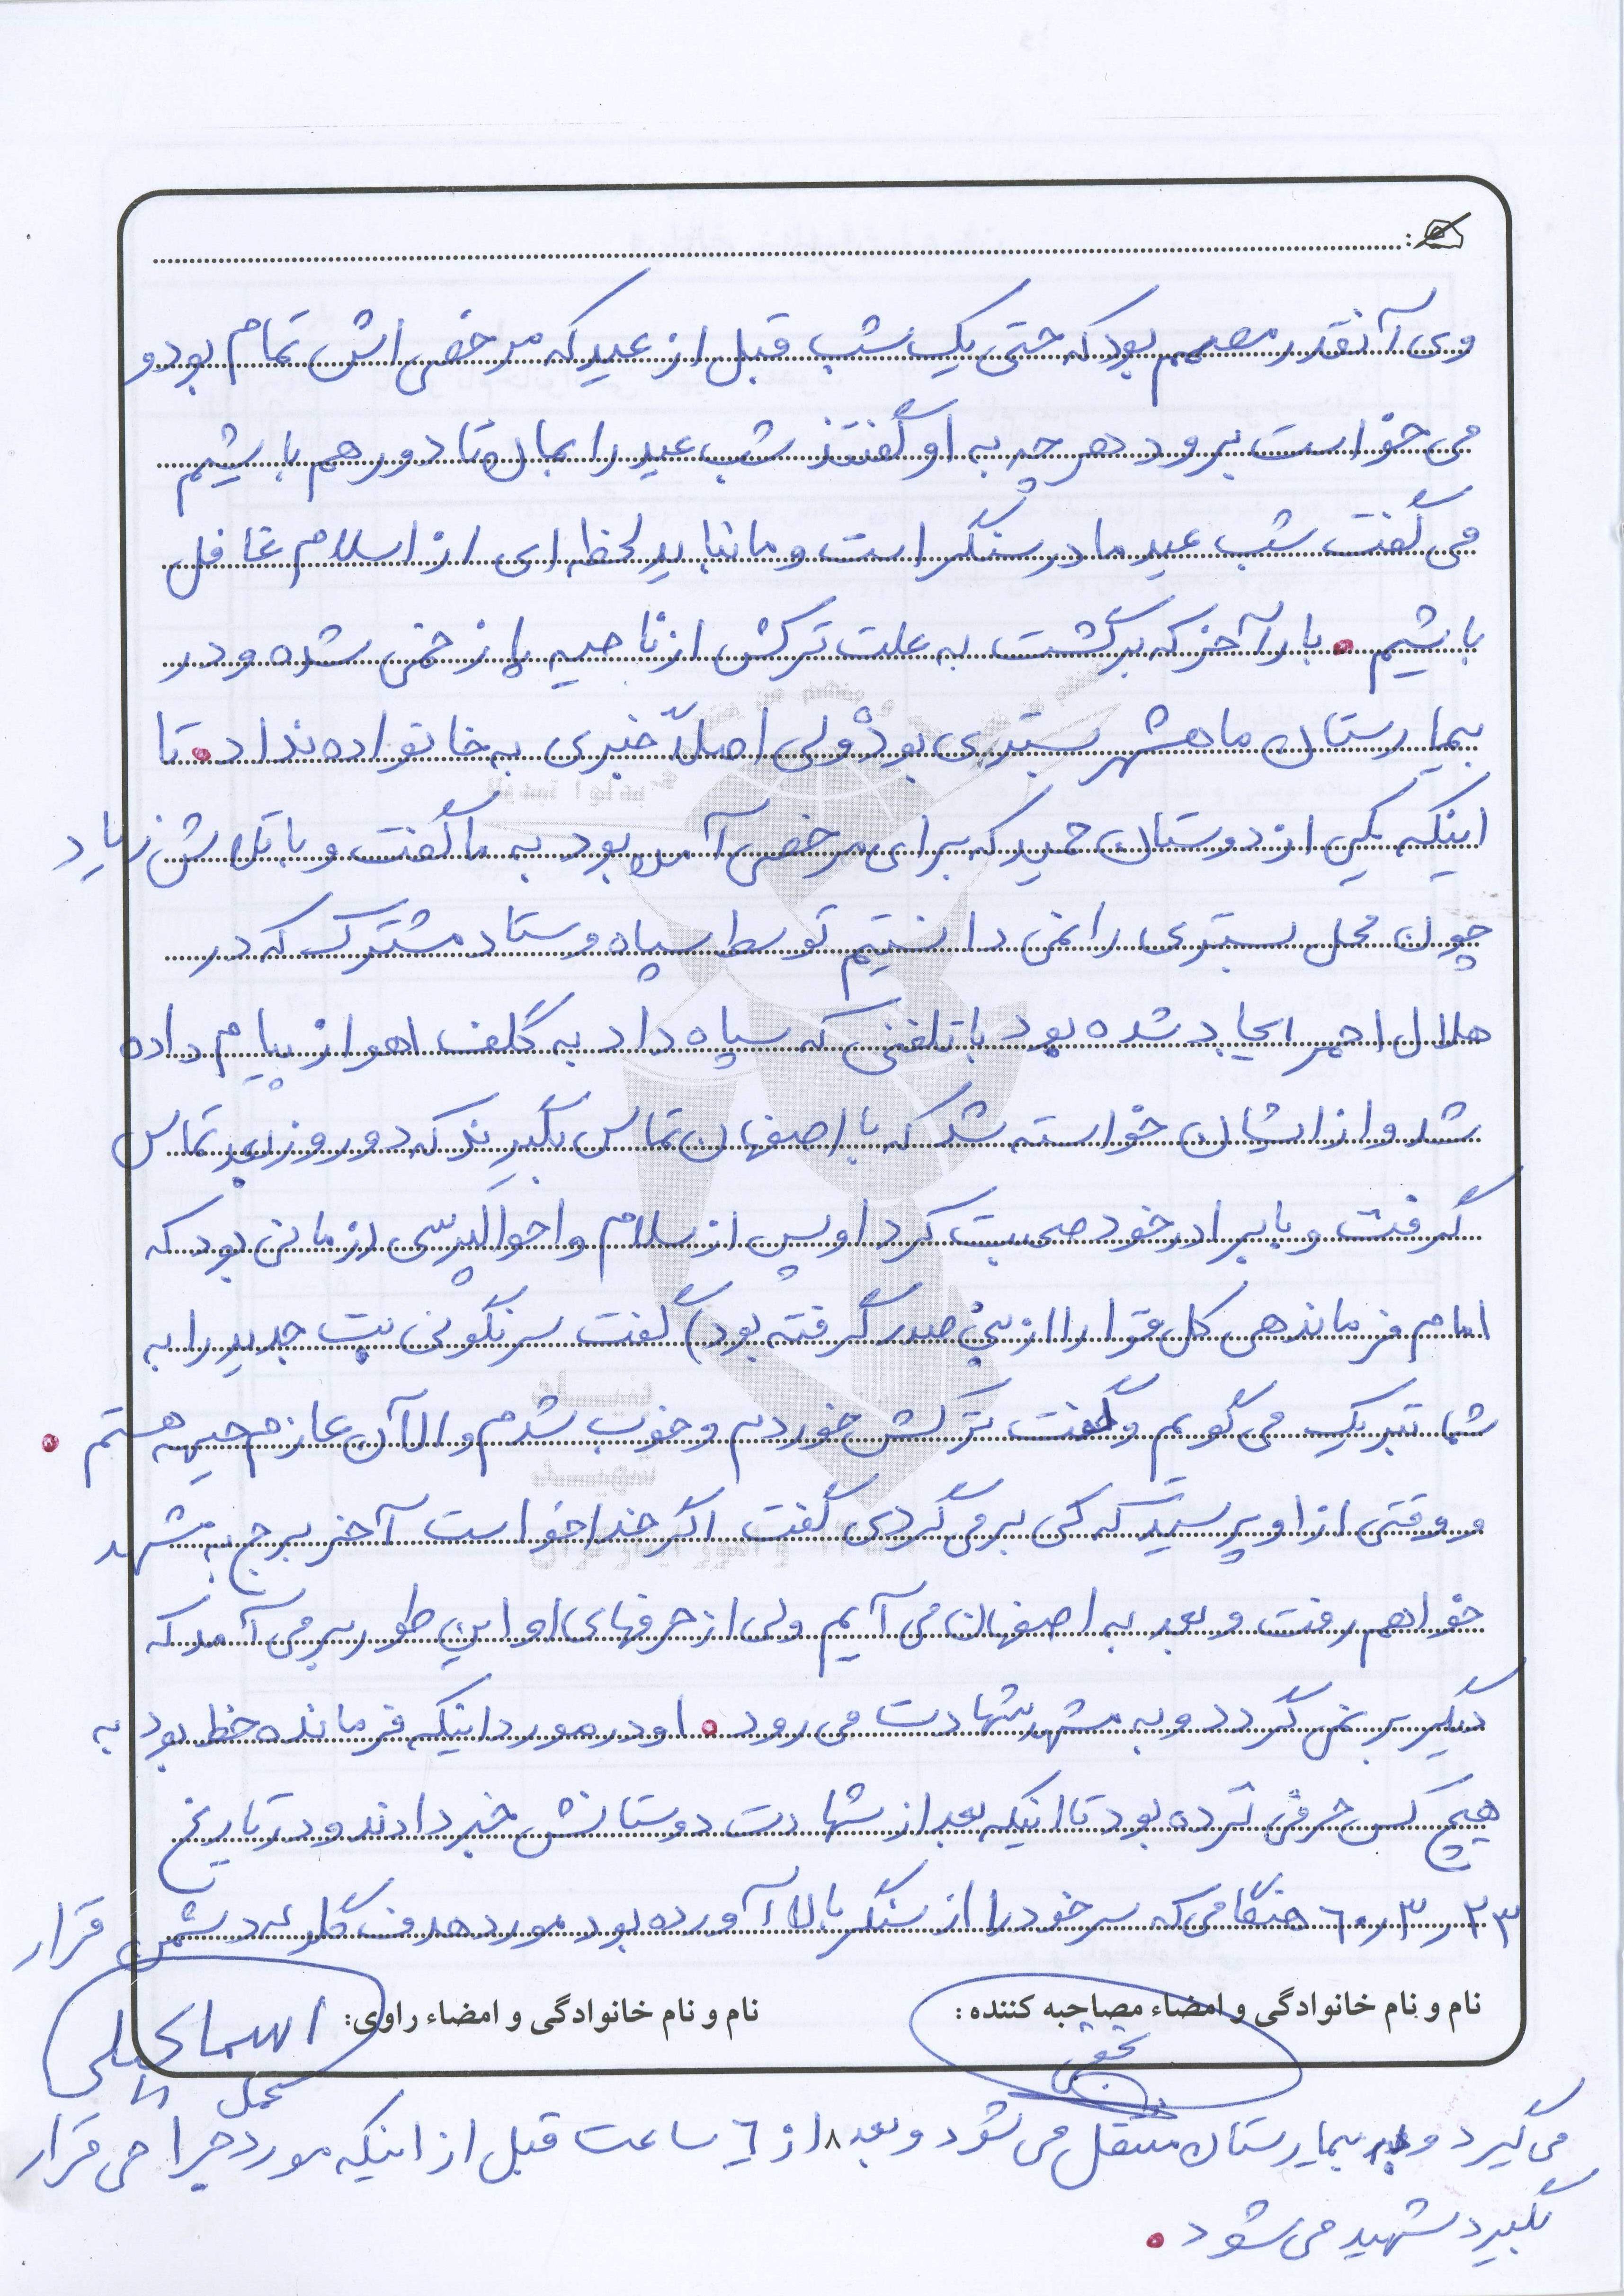 وی آنقدر مصمم بود که حتی یک شب قبل از عید که مرخصی اش تمام بود و
می خواست برود هر چه به او گفتند شب عید را بمان تا دور هم باشیم
می گفت شب عید ما در سنگر است و ما نباید لحظه ای از اسلام غافل
باشیم . بار آخر که برگشت به علت ترکش از ناحیه پا زخمی شده و در
بیمارستان ماهشهر بستری بود ولی اصلاً خبری به خانواده نداد . تا
اینکه یکی از دوستان حمید که برای مرخصی آمده بود به ما گفت و با تلاش زیاد
چون محل بستری را نمی دانستیم توسط سپاه و ستاد مشترک که در
هلال احمر ایجاد شده بود با تلفنی که سپاه داد به گلف اهواز پیام داده
شد و از ایشان خواسته شد که با اصفهان تماس بگیرند که دو روز بعد تماس
گرفت و با برادر خود صحبت کرد او پس از سلام و احوالپرسی (زمانی بود که
امام فرماندهی کل قوا را از بنی صدر گرفته بود) گفت سرنگونی بت جدید را به
شما تبریک می گویم و گفت ترکش خوردم و خوب شدم و الاآن عازم جبهه هستم .
و وقتی از او پرسید که کی برمی گردی گفت اگر خدا خواست آخر برج به مشهد
خواهم رفت و بعد به اصفهان می آیم ولی از حرفهای او این طور برمی آمد که
دیگر بر نمی گردد و به مشهد شهادت می رود . او در مورد اینکه فرمانده خط بود به
هیچ کس حرفی نزده بود تا اینکه بعد از شهادت دوستانش خبر دادند و در تاریخ
۶۰٫۳٫۲۳ هنگامی که سر خود را از سنگر بالا آورده بود مورد هدف گلوله دشمن قرار
نام و نام خانوادگی و امضاء مصاحبه کننده : نام و نام خانوادگی و امضاء راوی: اسماعیلی
می گیرد و به بیمارستان منتقل می شود و بعد از ۶ ساعت قبل از اینکه مورد جراحی قرار
بگیرد شهید می شود .